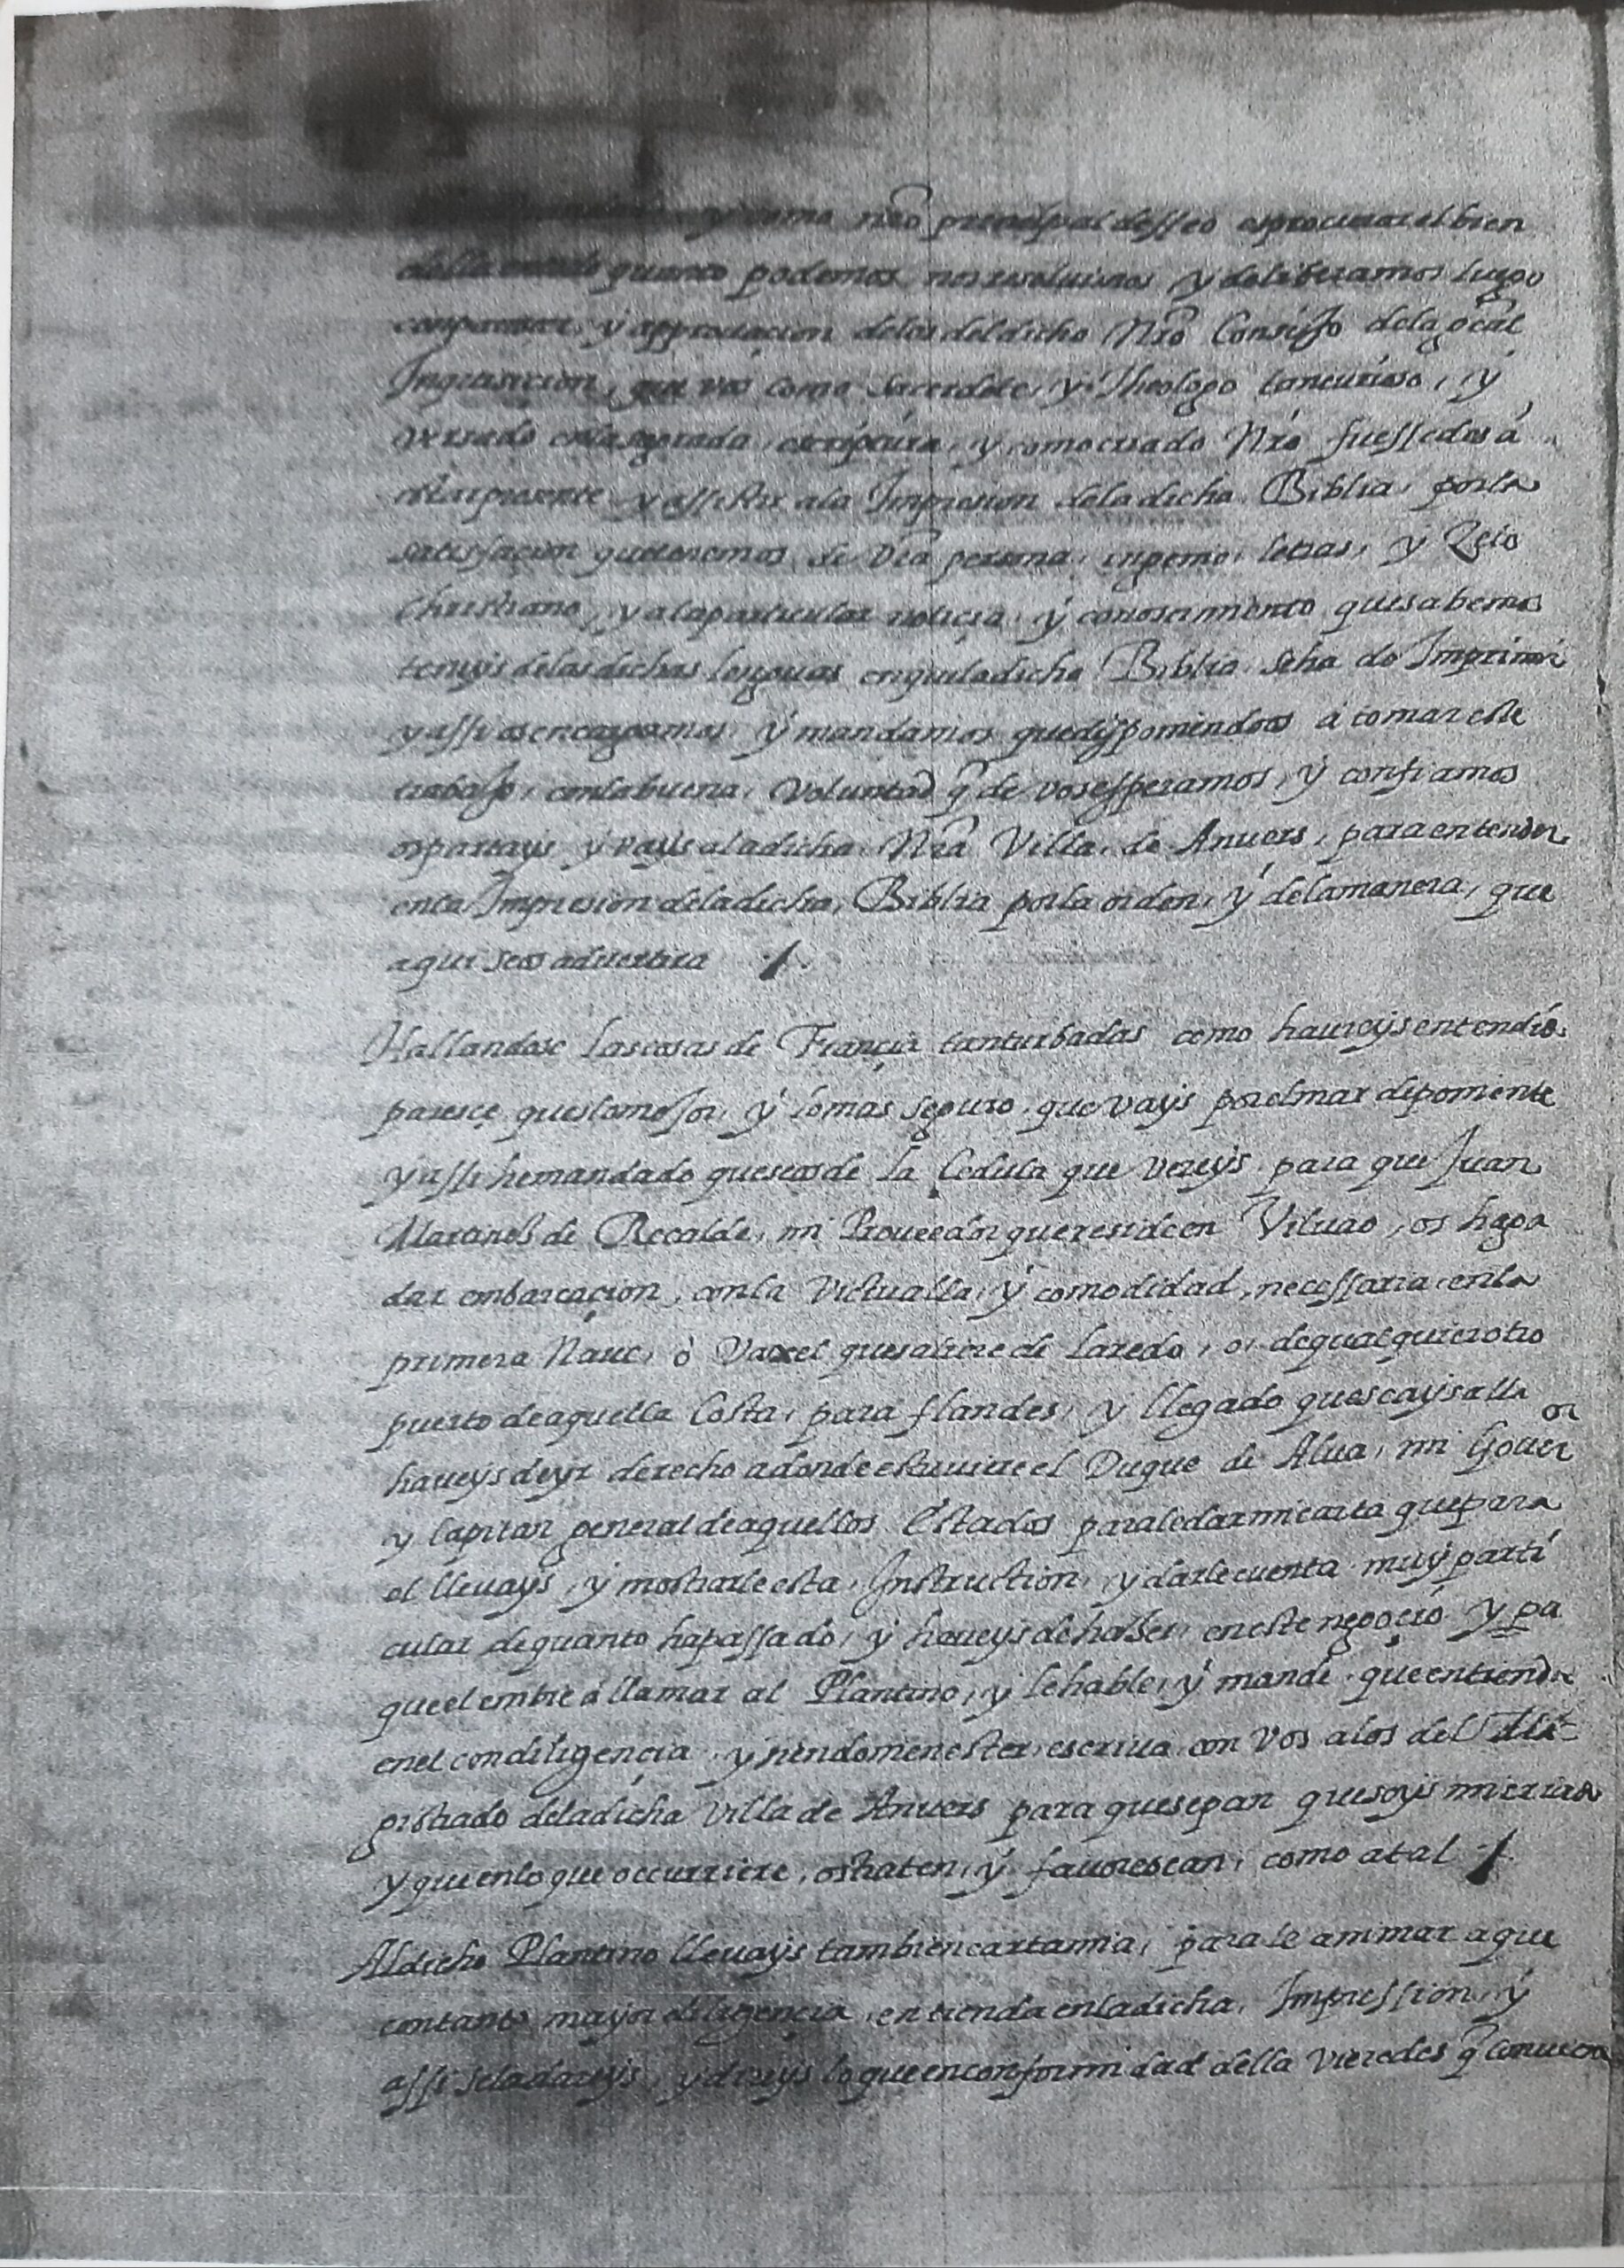 y como nr̃o principal desseo es procurar el bien
della quanto podemos nos resoluimos y deliberamos luego
con parescer, y approuacion delos del dicho Nr̃o Consejo dela gñal
Inquisicion, que vos como Sacerdote, y Theologo tan curioso, y
versado enla sagrada escriptura, y como criado Nr̃o fuessedes á
estar presente y assistir ala Impresion dela dicha Biblia, por la
satisfacion que tenemos de vr̃a persona, ingenio, letras, y Zelo
christiano, y ala particular noticia, y conoscimiento que sabemos
teneys delas dichas lenguas en que la dicha Biblia se ha de Imprimir
y assi os encargamos y mandamos que disponiendoos á tomar este
trabajo, con la buena, voluntad q̃ de vos esperamos, y confiamos
os partays y vays a la dicha Nr̃a Villa, de Anuers, para entender
en la Impresion dela dicha, Biblia por la orden, y dela manera, que
aqui se os aduertira /.
Hallandose las cosas de Françia tan turbadas como haureys entendido
paresce que es lo mejor, y lo mas seguro, que vays por el mar de poniente
y assi he mandado que se os de la Cedula que vereys para que Juan
Martinez de Recalde, mi Proueedor que reside en Viluao, os haga
dar embarcaçion, con la Victualla, y comodidad, necessaria en la
primera Naue, ò Vaxel que saliere de Laredo, o, de qualquier otro
puerto de aquella Costa, para flandes, y llegado que seays alla
haueys de yr derecho adonde estuuiere el Duque de Alua, mi Gouer^or
y Capitan general de aquellos Estados para le dar mi carta que para
el lleuays, y mostrarle esta, Instruction, y darle cuenta muy parti
cular de quanto ha passado, y haueys de hazer, en este negoçio y pa
que el embie á llamar al Plantino, y le hable, y mande que entienda
en el con diligençia, y siendo menester escriua con Vos a los del Ma-
gistrado dela dicha Villa de Anuers para que sepan que soys mi criado
y que en lo que occurriere, os traten, y fauorescan, como a tal /.
Al dicho Plantino lleuays tambien carta mia, para le animar a que
con tanto mayor diligençia, entienda en la dicha, Impression, y
assi se la dareys, y direys lo que en conformidad della vieredes q̃ conuiene